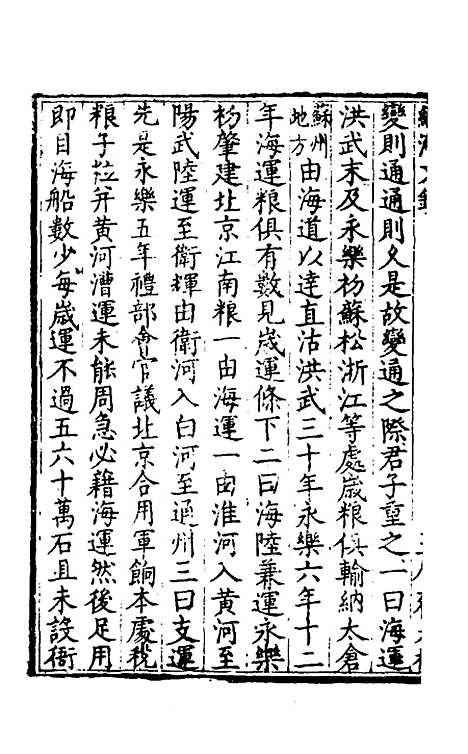 變則通通則久是故變通之際君子重之一曰海運
洪武末及永樂初蘇松浙江等處歲粮俱輸納太倉
蘇州地方由海道以達直沽洪武三十年永樂六年十二
年海運粮俱有數見歲運條下二曰海陸兼運永樂
初肇建北京江南粮一由海運一由淮河入黃河至
陽武陸運至衛輝由衛河入白河至通州三曰支運
先是永樂五年禮部會官議北京合用軍餉本處稅
粮子粒并黃河漕運未能周急必藉海運然後足用
即目海船數少每歲運不過五六十萬石且未設衙